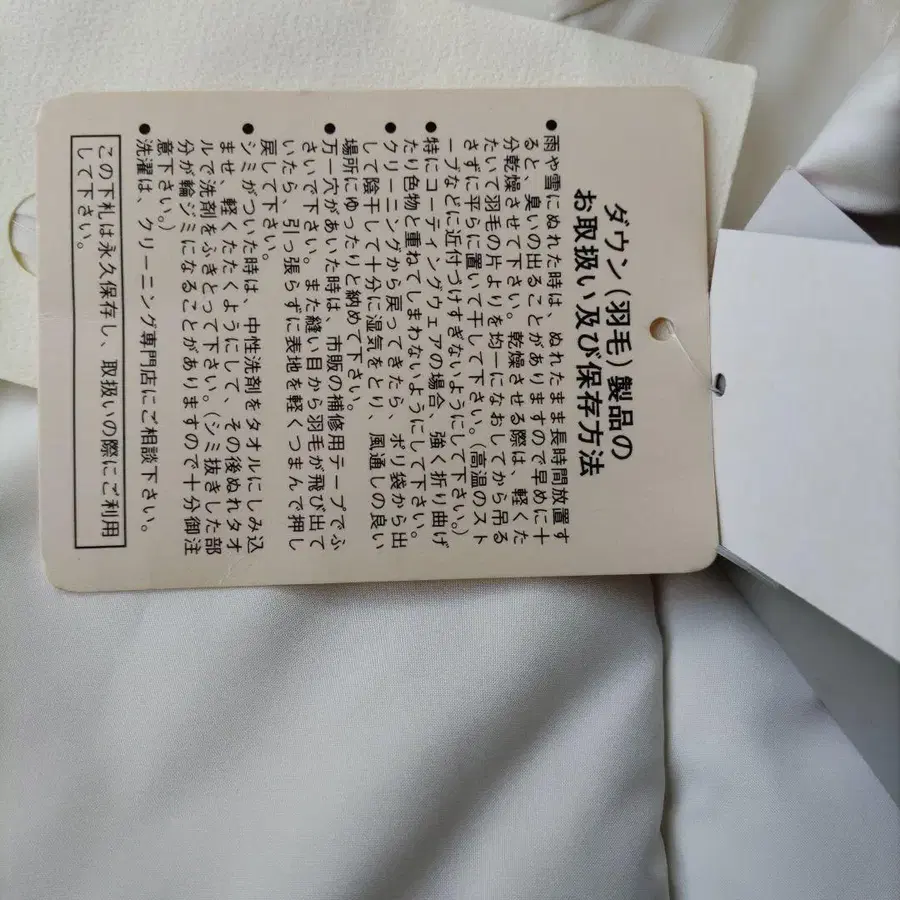 ダウン(羽毛)製品の
お取扱い及び保存方法
●雨や雪にぬれた時は、ぬれたまま長時間放置す
ると、臭いの出ることがありますので早めに十
分乾燥させて下さい。乾燥させる際は、軽くた
たいて羽毛の片よりを均一になおしてから吊る
さずに平らに置いて干して下さい。(高温のスト
ーブなどに近付づけすぎないようにして下さい。)
●特にコーティングウェアの場合、強く折り曲げ
たり色物と重ねてしまわないようにして下さい。
●クリーニングから戻ってきたら、ポリ袋から出
して陰干しで十分に湿気をとり、風通しの良い
場所にゆったりと納めて下さい。
●万一穴があいた時は、市販の補修用テープでふ
さいで下さい。また縫い目から羽毛が飛び出て
いたら、引っ張らずに表地を軽くつまんで押し
戻して下さい。
●シミがついた時は、中性洗剤をタオルにしみ込
ませ、軽くたたくようにして、その後ぬれタオ
ルで洗剤をふきとって下さい。(シミ抜きした部
分が輪ジミになることがありますので十分御注
意下さい。)
●洗濯は、クリーニング専門店にご相談下さい。
この下札は永久保存し、取扱いの際にご利用
して下さい。